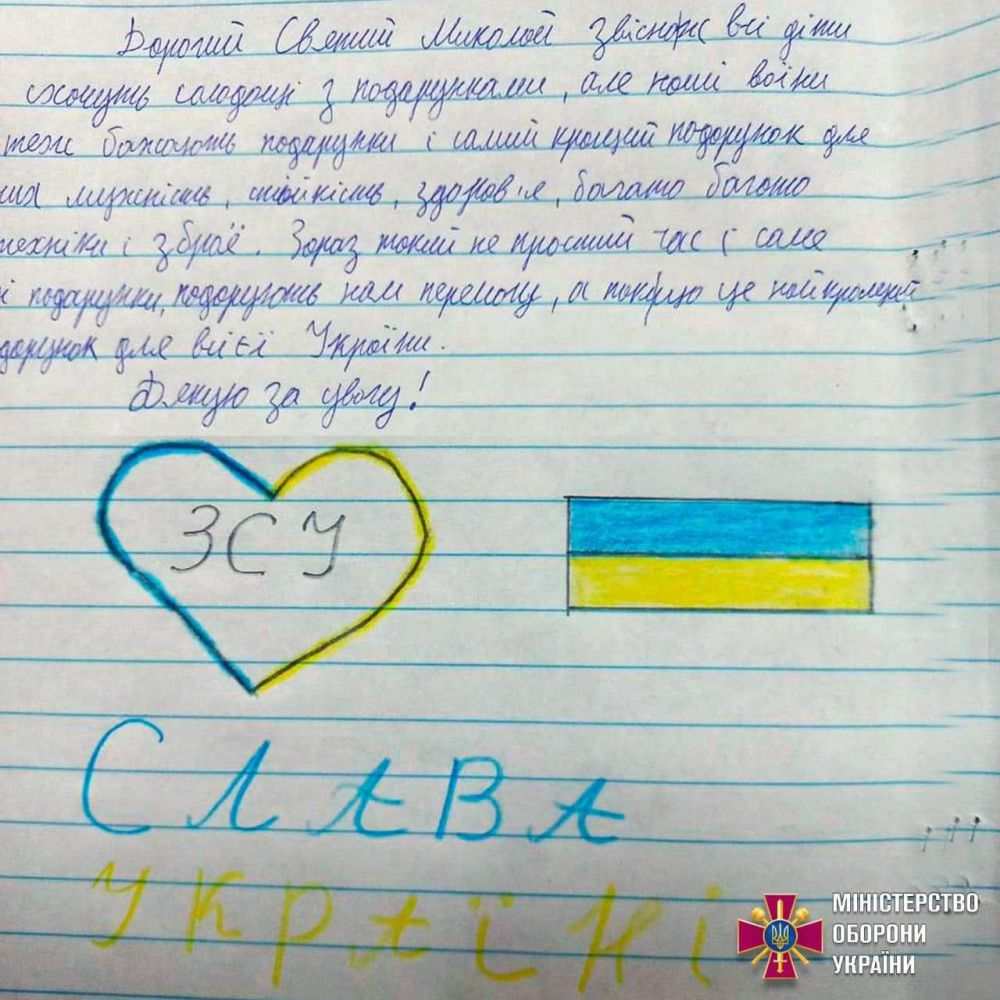 Дорогий Святий Миколай звісно ж всі діти
хочуть солодощі з подарунками, але наші воїни
теж бажають подарунки і самий кращий подарунок для
них мужність, стійкість, здоров'я, багато багато
техніки і зброї. Зараз такий не простий час і саме
і подарунки, подарують нам перемогу, а
це найкращий
дарунок для всієї України.
Дякую за увагу!
ЗСУ
СЛАВА
УКРАЇНІ
МІНІСТЕРСТВО
ОБОРОНИ
УКРАЇНИ